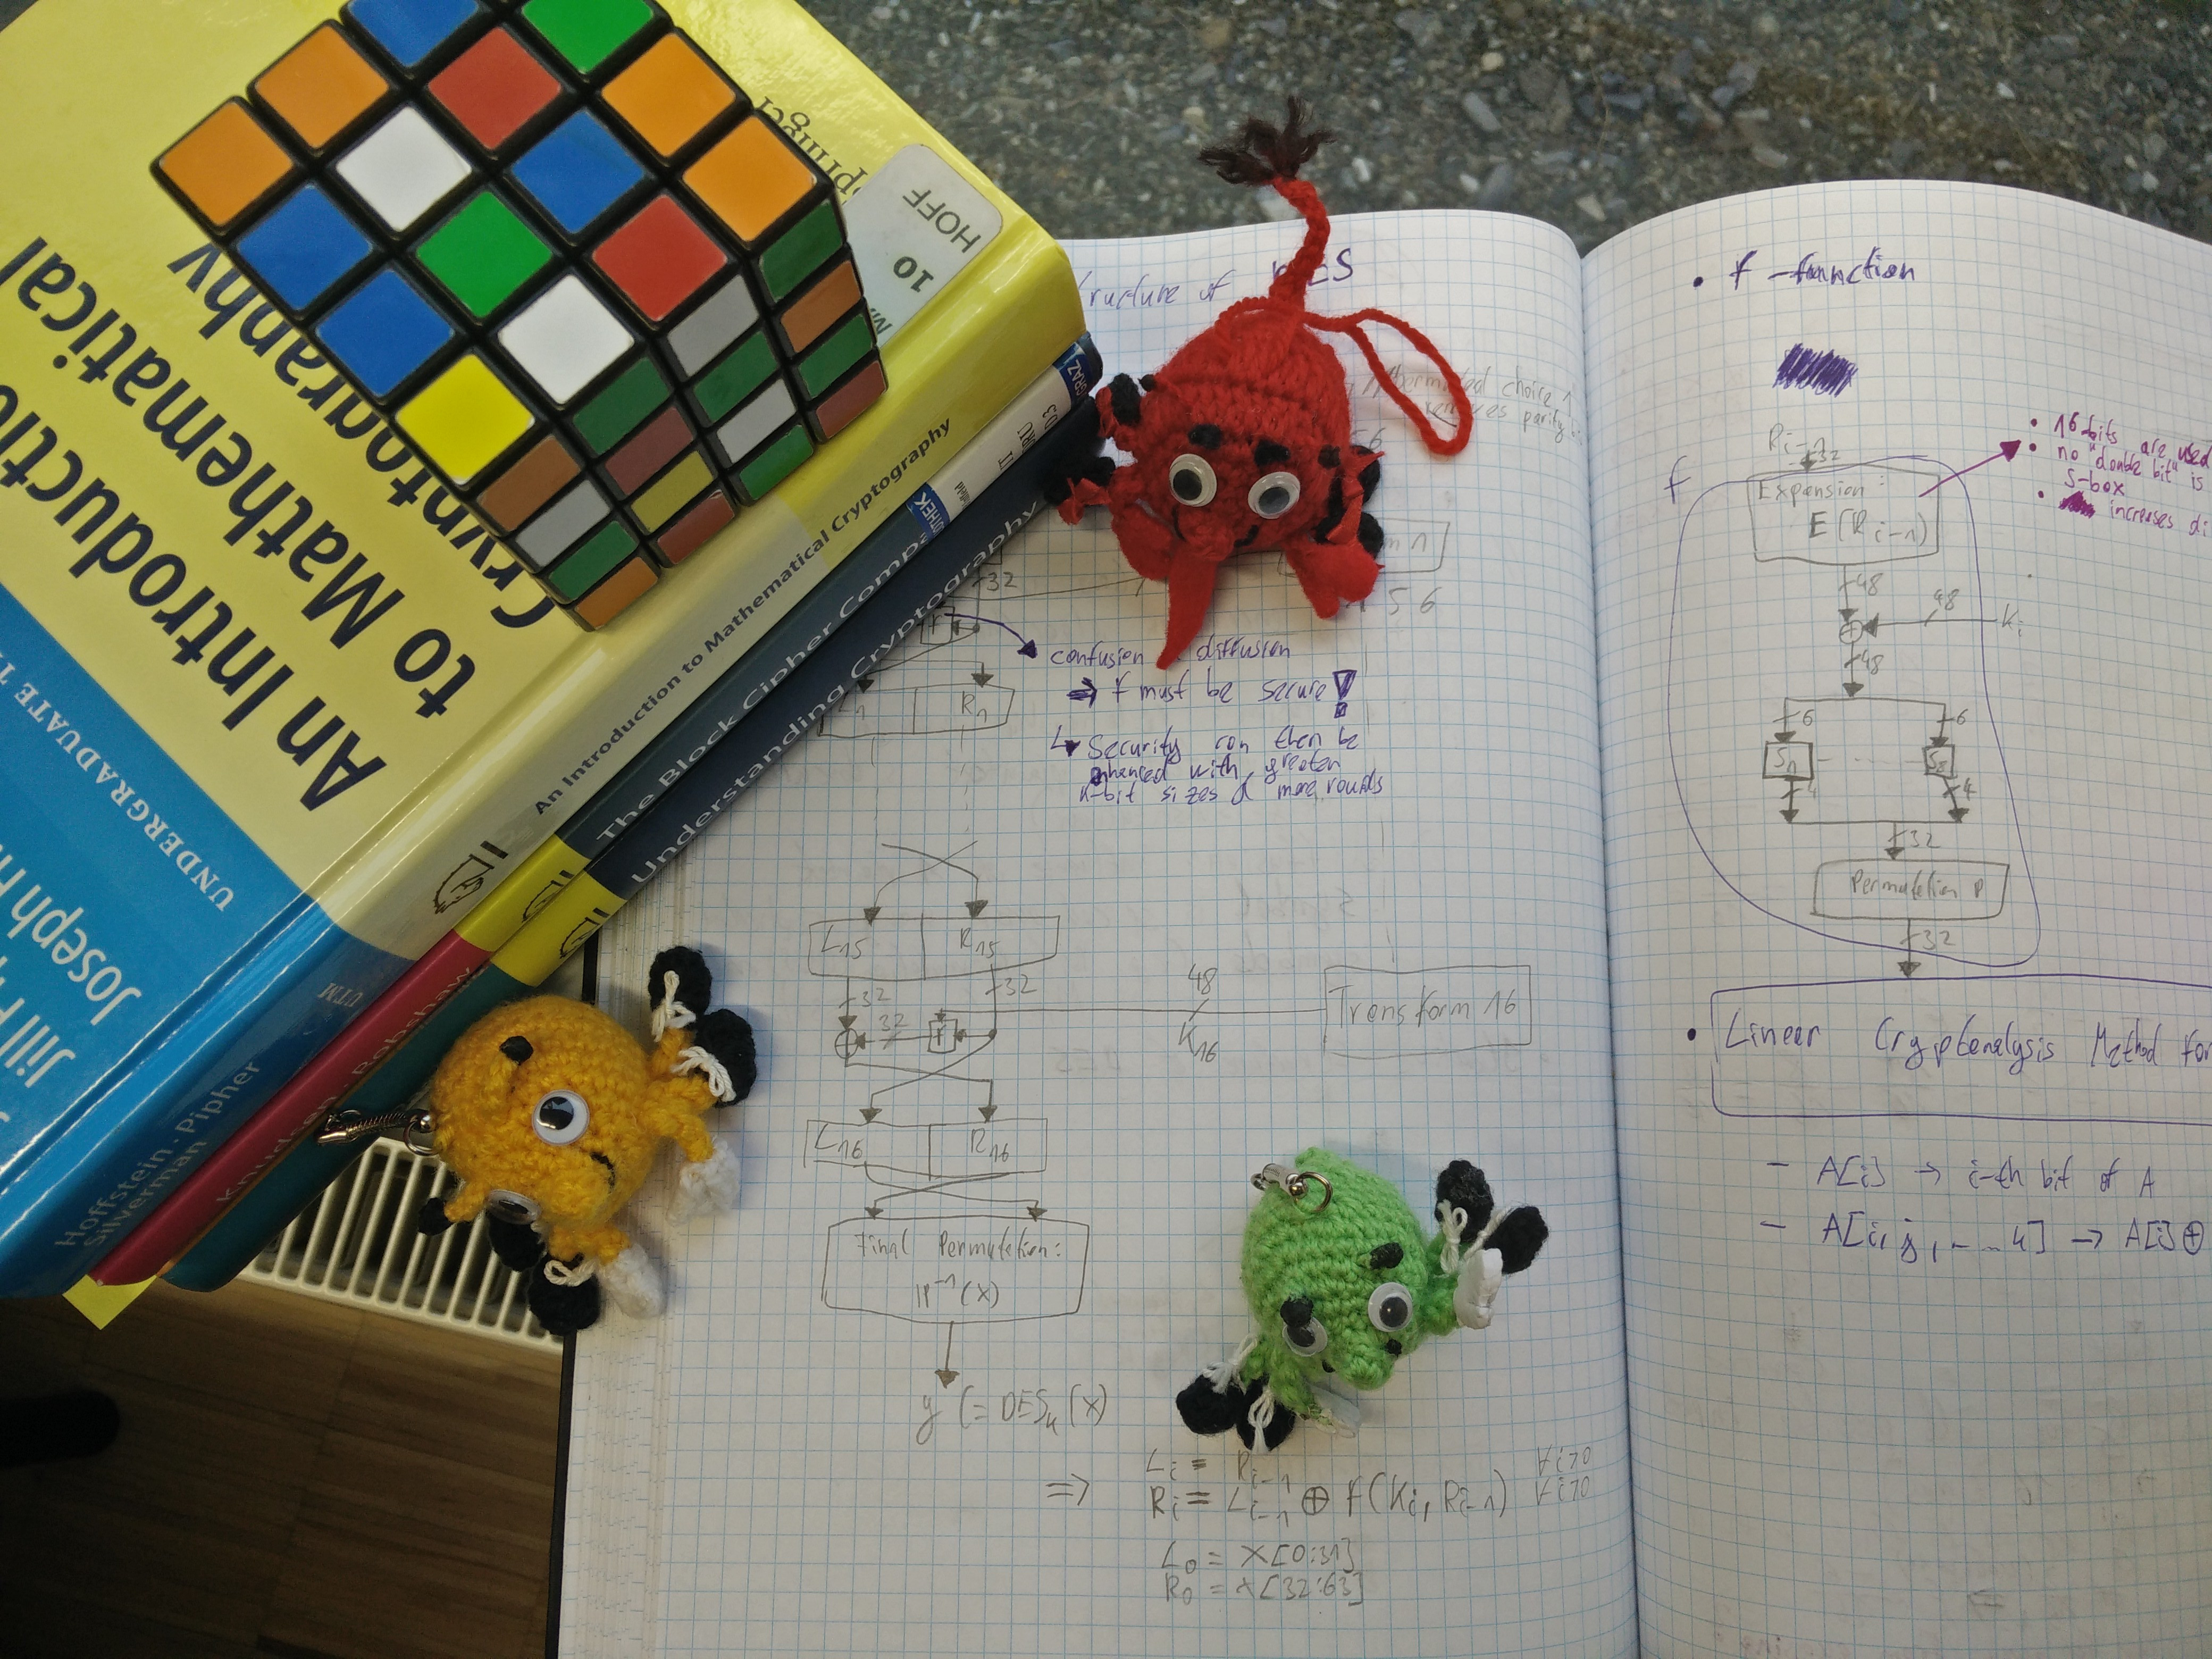 An Introductio
to Mathematical
Cryptography
UNDERGRADUATE
Jill
Joseph
Springer
HOFF
10
An Introduction to Mathematical Cryptography
Hoffstein · Pipher
Silverman
UTM
The Block Cipher Comp
Knudsen · Robshaw
GRAZ
Understanding Cryptography
tructure of
permuted choice 1
parity
56
32
56
confusion diffusion
⇒ f must be secure!
↳ Security can then be
enhanced with greater
n-bit sizes & more rounds
R1
L15 R15
32 32
48
32 f
K16
Transform 16
L16 R16
Final Permutation:
IP⁻¹(x)
y (= DESk (x)
⇒ Li = Ri-1 ∀i>0
Ri = Li-1 ⊕ f(Ki, Ri-1) ∀i>0
L0 = x[0:31]
R0 = x[32:63]
• f-function
Ri-1
32
f
Expansion:
E(Ri-1)
• 16 bits are used
• no "double bit" is
S-box
• increases di
48
48
Ki
48
6 6
S1 S8
4 4
32
Permutation P
32
• Linear Cryptanalysis Method for
- A[i] → i-th bit of A
- A[i, j, ... k] → A[i] ⊕